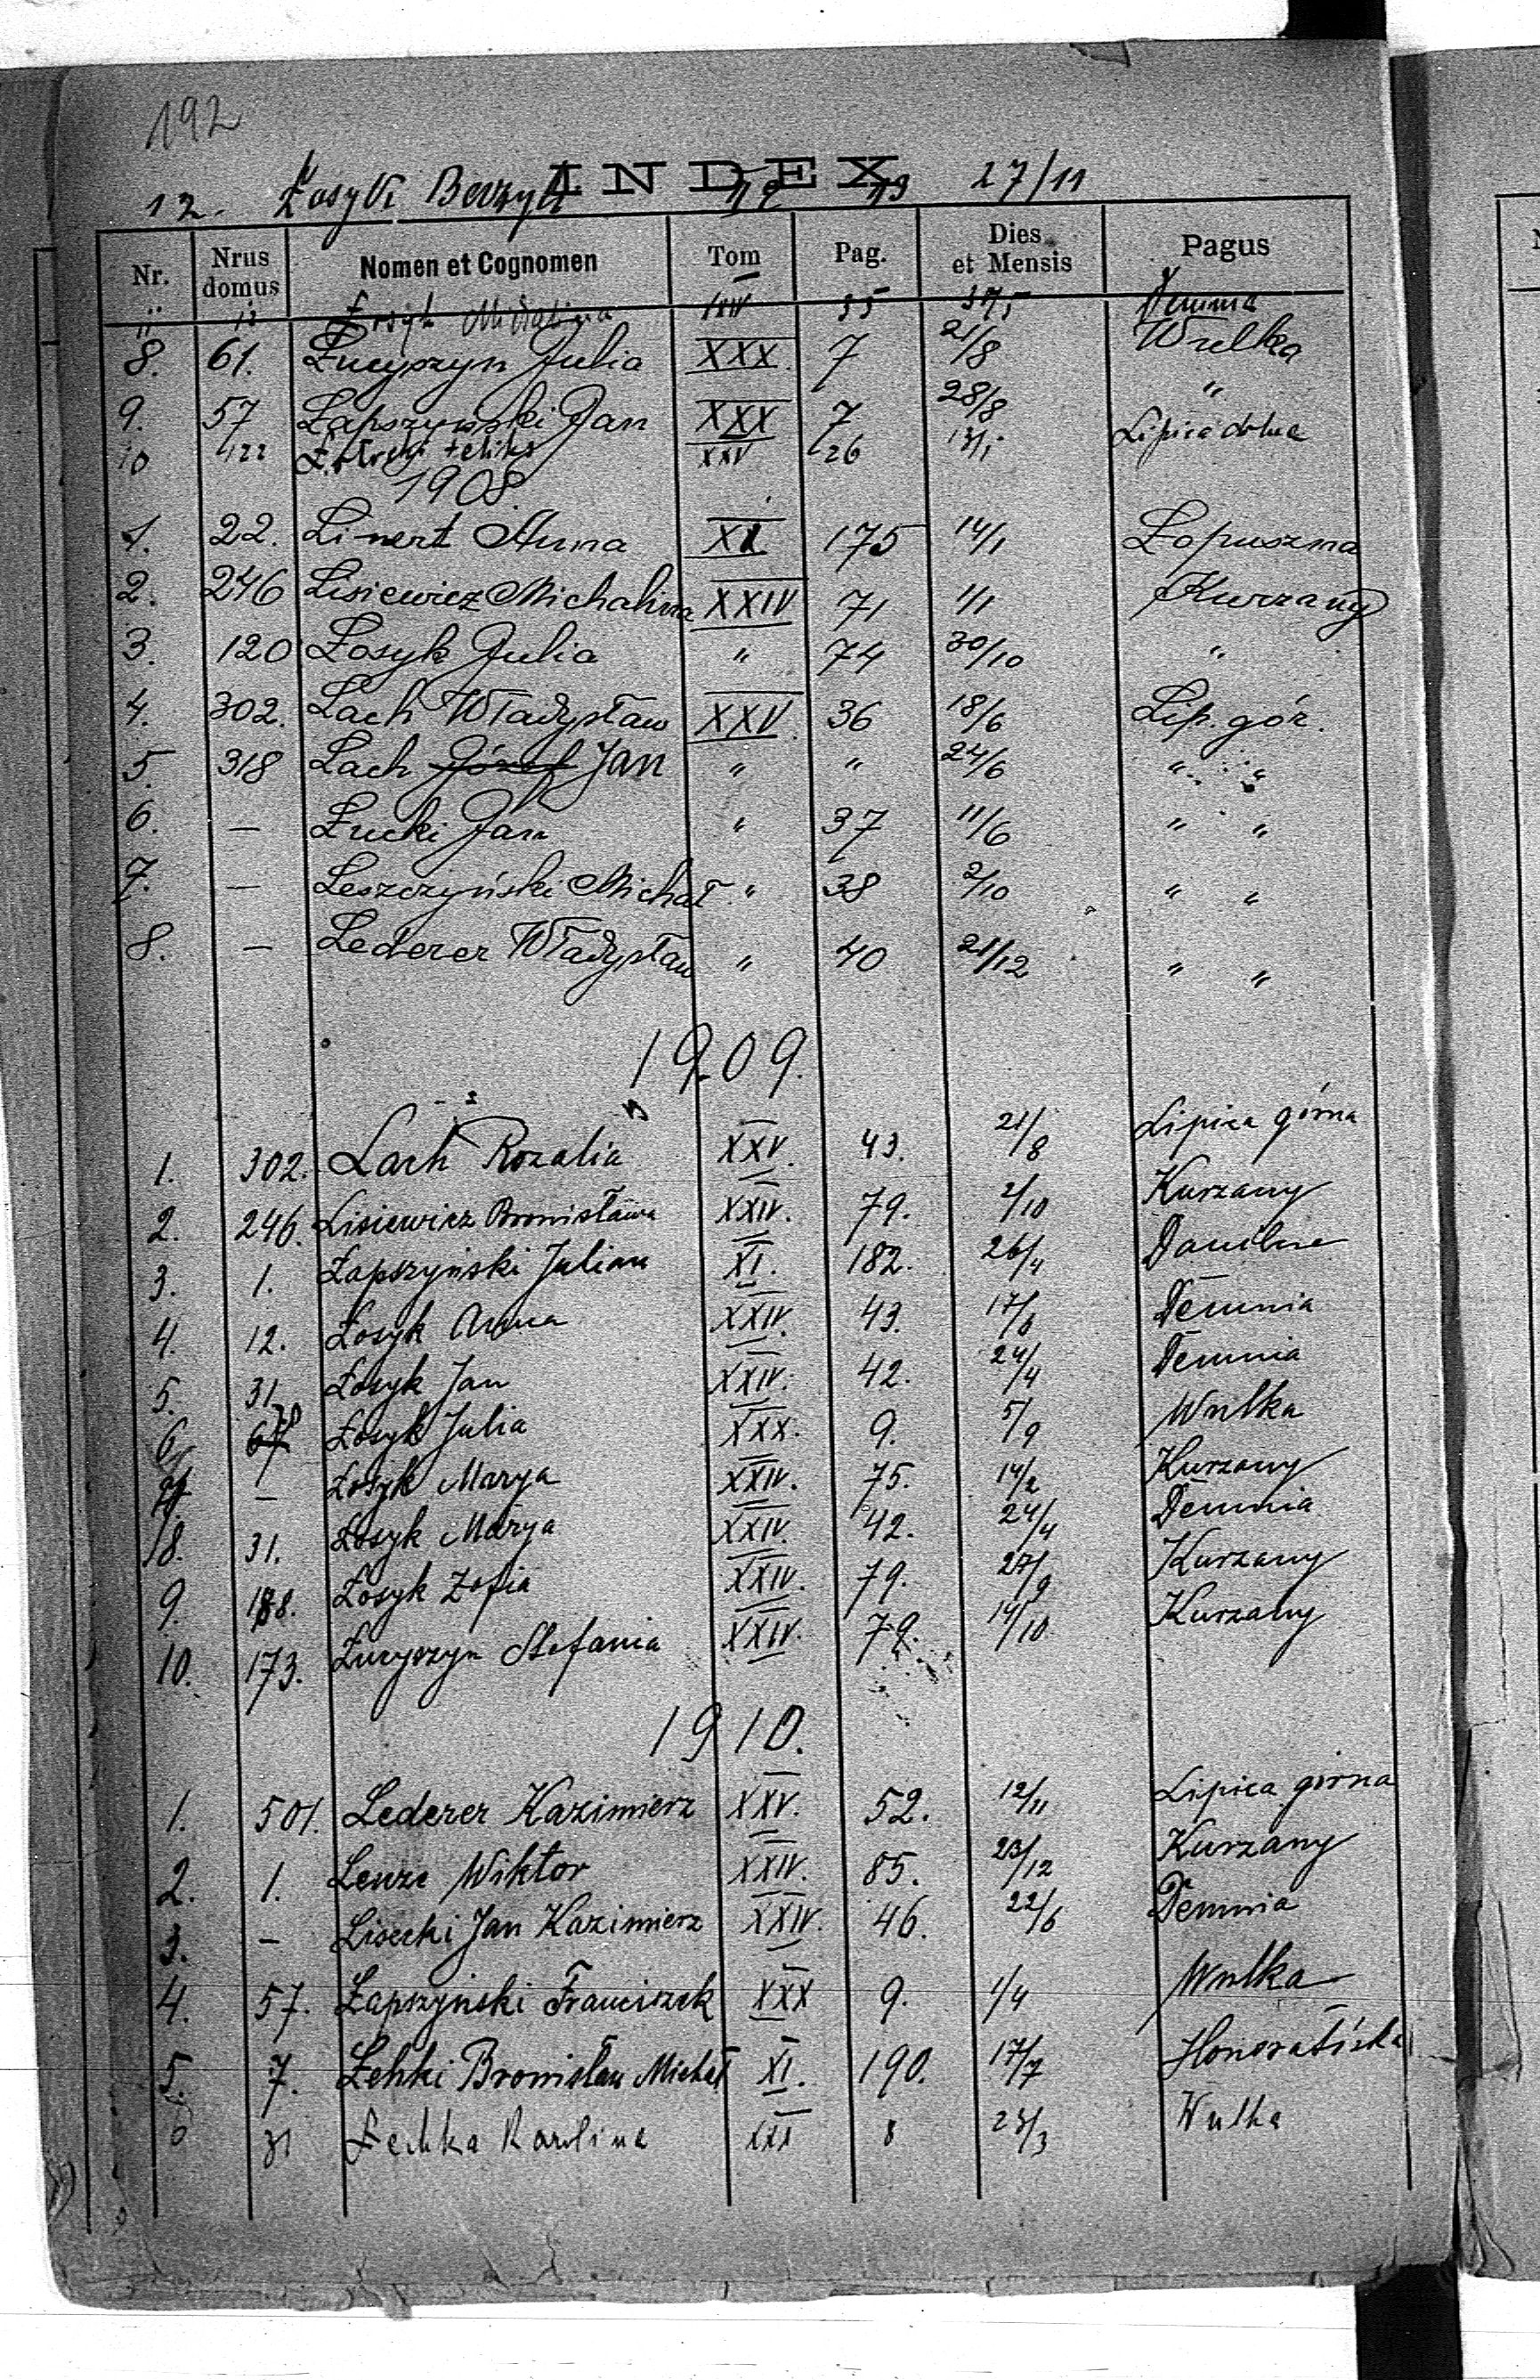 192
INDEX
12. Łosyk 19 13 27/11
Nr. Nrus domus Nomen et Cognomen Tom Pag. Dies et Mensis Pagus
11 12 Łosyk Michalina XXIV 35 Demnia
8. 61. Łucyszyn Julia XXX. 7 21/8 Wulka
9. 57 Łapszyński Jan XXX 7 28/8 "
10 122 XXV 26 Lipica dolna
1908
1. 22. Linert Anna XI 175 14/1 Łopuszna
2. 246 Lisiewicz Michalina XXIV 71 1/1 Kurzany
3. 120 Łosyk Julia " 74 30/10 "
4. 302. Lach Władysław XXV. 36 18/6 Lip. gór.
5. 318 Lach Józef Jan " " 24/6 " "
6. — Łucki Jan " 37 11/6 " "
7. — Leszczyński Michał " 38 2/10 " "
8. — Lederer Władysław " 40 21/12 " "
1909.
1. 302. Lach Rozalia XXV. 43. 21/8 Lipica górna
2. 246. Lisiewicz Bronisława XXIV. 79. 2/10 Kurzany
3. 1. Łapszyński Julian XI. 182. 26/4
4. 12. Łosyk Anna XXIV. 43. 17/6 Demnia
5. 31. Łosyk Jan XXIV. 42. 24/4 Demnia
6. Łosyk Julia XXX. 9. 5/9 Wulka
7. — Łosyk Marya XXIV. 75. 14/2 Kurzany
8. 31. Łosyk Marya XXIV. 42. 24/4 Demnia
9. 188. Łosyk Zofia XXIV. 79. 27/9 Kurzany
10. 173. Łucyszyn Stefania XXIV. 79. 14/10 Kurzany
1910.
1. 501. Lederer Kazimierz XXV. 52. 12/11 Lipica górna
2. 1. Lenze Wiktor XXIV. 85. 23/12 Kurzany
3. — Lisecki Jan Kazimierz XXIV. 46. 22/6 Demnia
4. 57. Łapszyński Franciszek XXX 9. 1/4 Wulka
5. 7. Łehki Bronisław Michał XI. 190. 17/7
6 31 Łechka Karolina XXX 8 23/3 Wulka